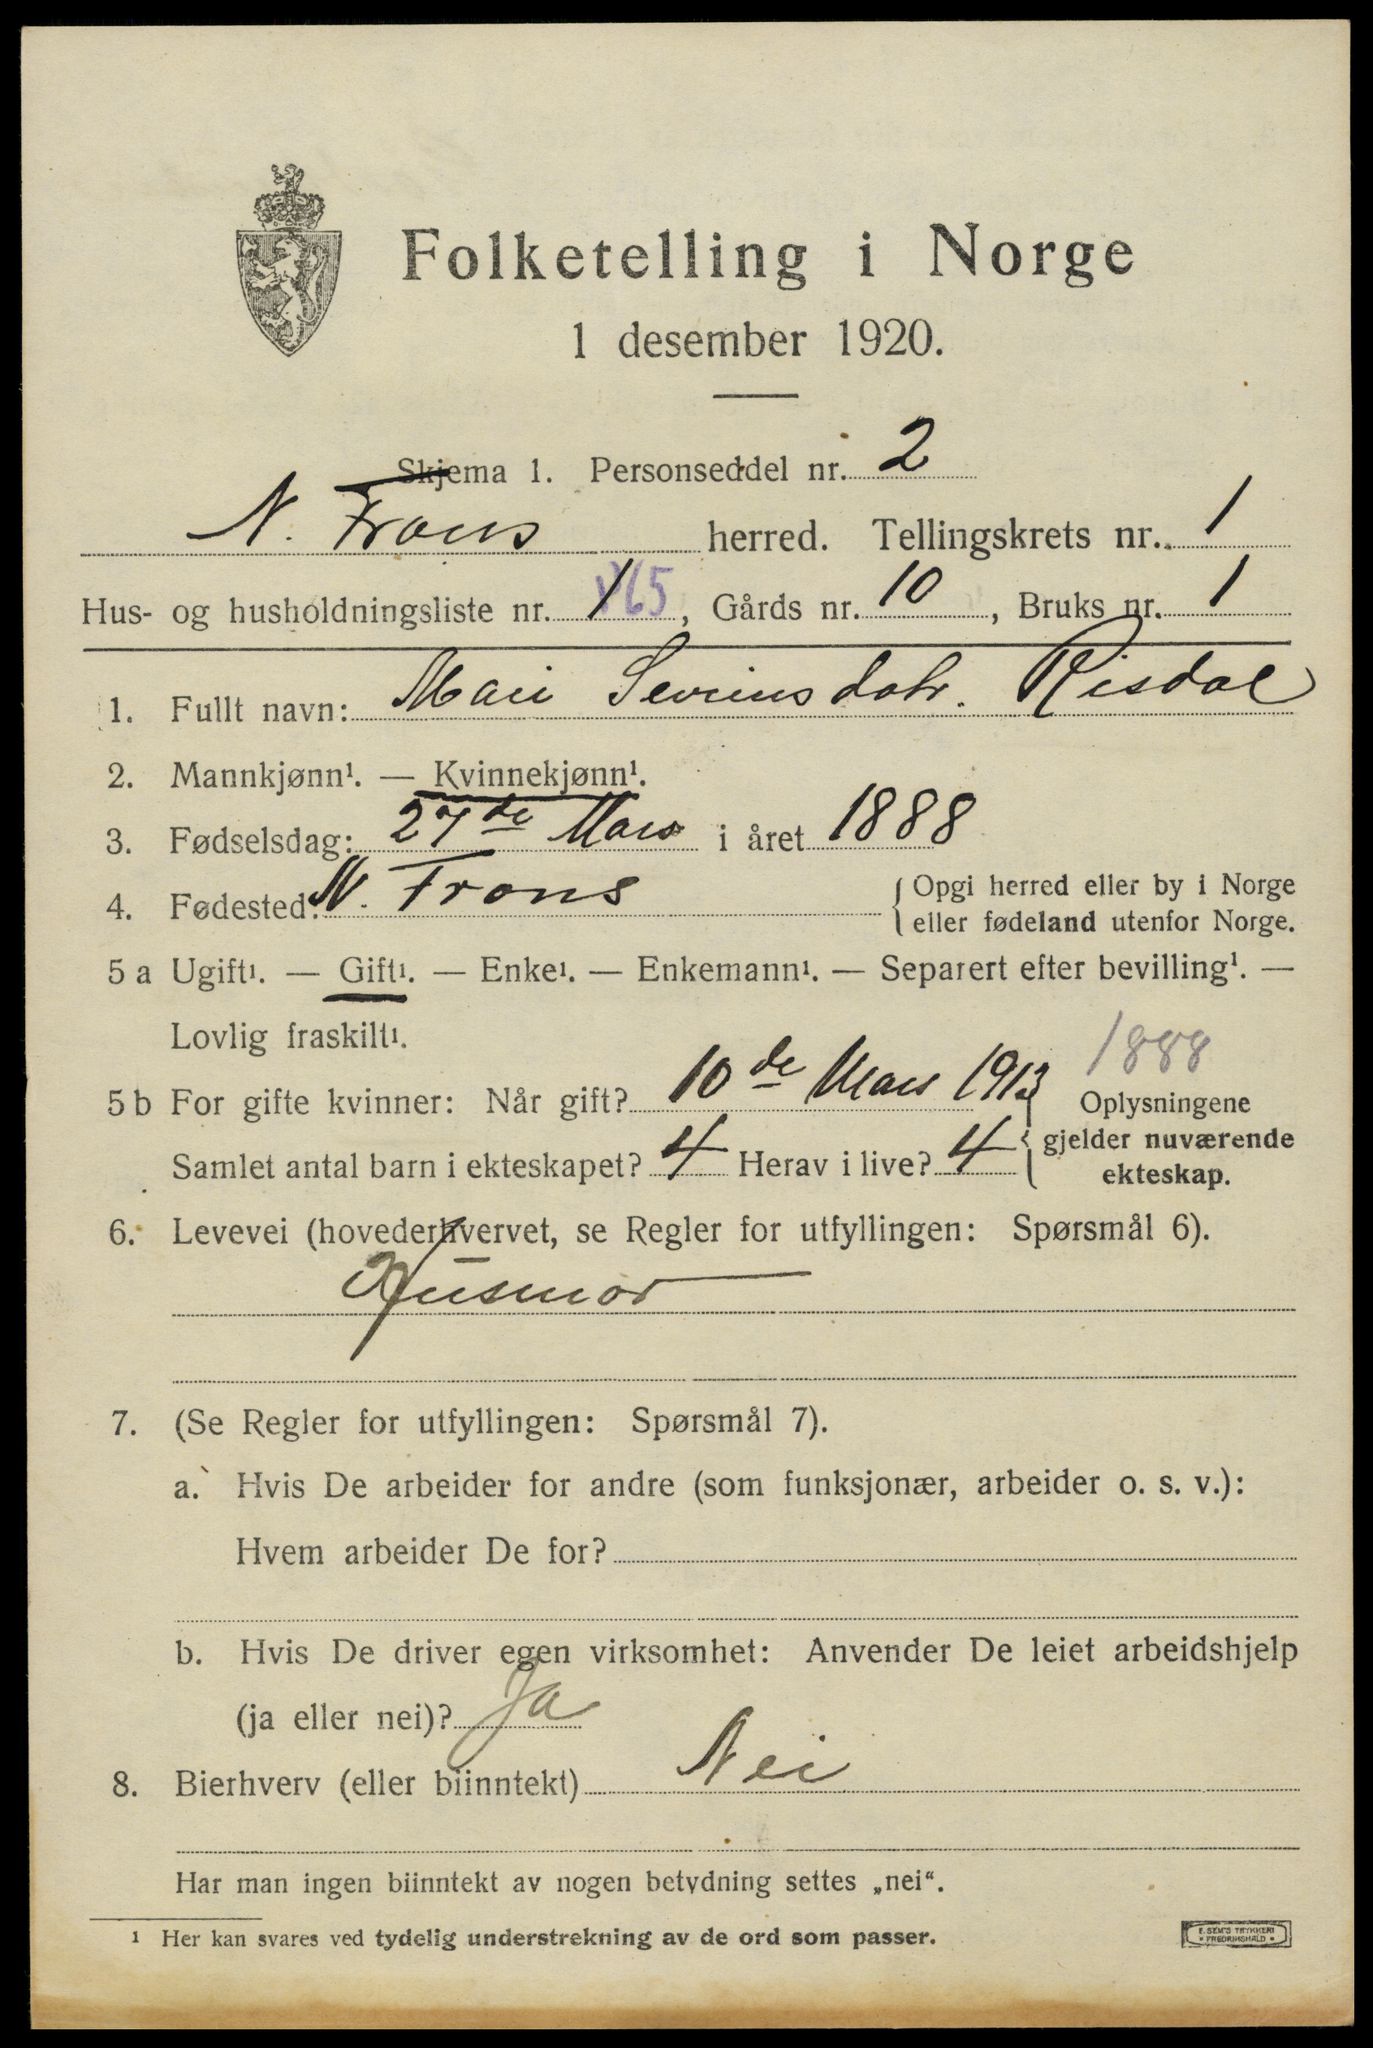 Folketelling i Norge
1 desember 1920.
Skjema 1. Personseddel nr. 2
N. Frons herred. Tellingskrets nr. 1
Hus- og husholdningsliste nr. 1 865, Gårds nr. 10, Bruks nr. 1
1. Fullt navn: Mari Severinsdotr. Risdal
2. Mannkjønn¹. — Kvinnekjønn¹.
3. Fødselsdag: 27de Mars i året 1888
4. Fødested: N. Frons { Opgi herred eller by i Norge
eller fødeland utenfor Norge.
5 a Ugift¹. — Gift¹. — Enke¹. — Enkemann¹. — Separert efter bevilling¹. —
Lovlig fraskilt¹.
1888
5 b For gifte kvinner: Når gift? 10de Mars 1913 { Oplysningene
gjelder nuværende
ekteskap.
Samlet antal barn i ekteskapet? 4 Herav i live? 4
6. Levevei (hovederhvervet, se Regler for utfyllingen: Spørsmål 6).
Husmor
7. (Se Regler for utfyllingen: Spørsmål 7).
a. Hvis De arbeider for andre (som funksjonær, arbeider o. s. v.):
Hvem arbeider De for?
b. Hvis De driver egen virksomhet: Anvender De leiet arbeidshjelp
(ja eller nei)? Ja
8. Bierhverv (eller biinntekt) Nei
Har man ingen biinntekt av nogen betydning settes „nei“.
1 Her kan svares ved tydelig understrekning av de ord som passer.
E. SEM'S TRYKKERI
FREDRIKSHALD